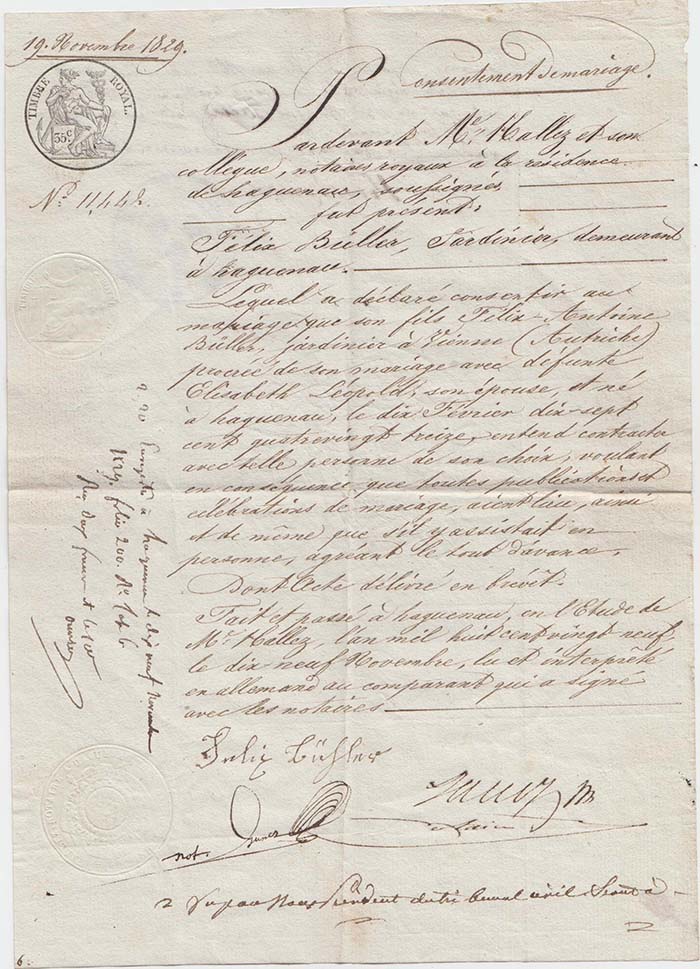 19. Novembre 1829.
Consentement de mariage.
TIMBRE ROYAL.
35 c
Nº 11,442.
Pardevant Me. Hallez et son
collègue, notaires royaux à la résidence
de haguenau, soussignés
fut présent:
Félix Büller, Jardinier, demeurant
à haguenau.
Lequel a déclaré consentir au
mariage que son fils Félix-Antoine
Büller, jardinier à Vienne (Autriche)
procréé de son mariage avec défunte
Elisabeth Léopold, son épouse et né
à haguenau, le dix Février dix-sept
cent quatrevingt treize, entend contracter
avec telle personne de son choix, voulant
en conséquence que toutes publications et
célébrations de mariage, aient lieu, ainsi
et de même que s'il y assistait en
personne, agréant le tout d'avance.
Dont Acte délivré en brevet.
Fait et passé à haguenau, en l'Etude de
Me. Hallez, l'an mil huit cent vingt neuf
le dix neuf Novembre, lu et interprêté
en allemand au comparant qui a signé
avec les notaires
2,20 Enregistré à haguenau le dix neuf novembre
1829. folio 200. Nº
Reçu deux francs
Felix Bühler
not.
2 Vu par Nous Président du tribunal civil Séant à
6.